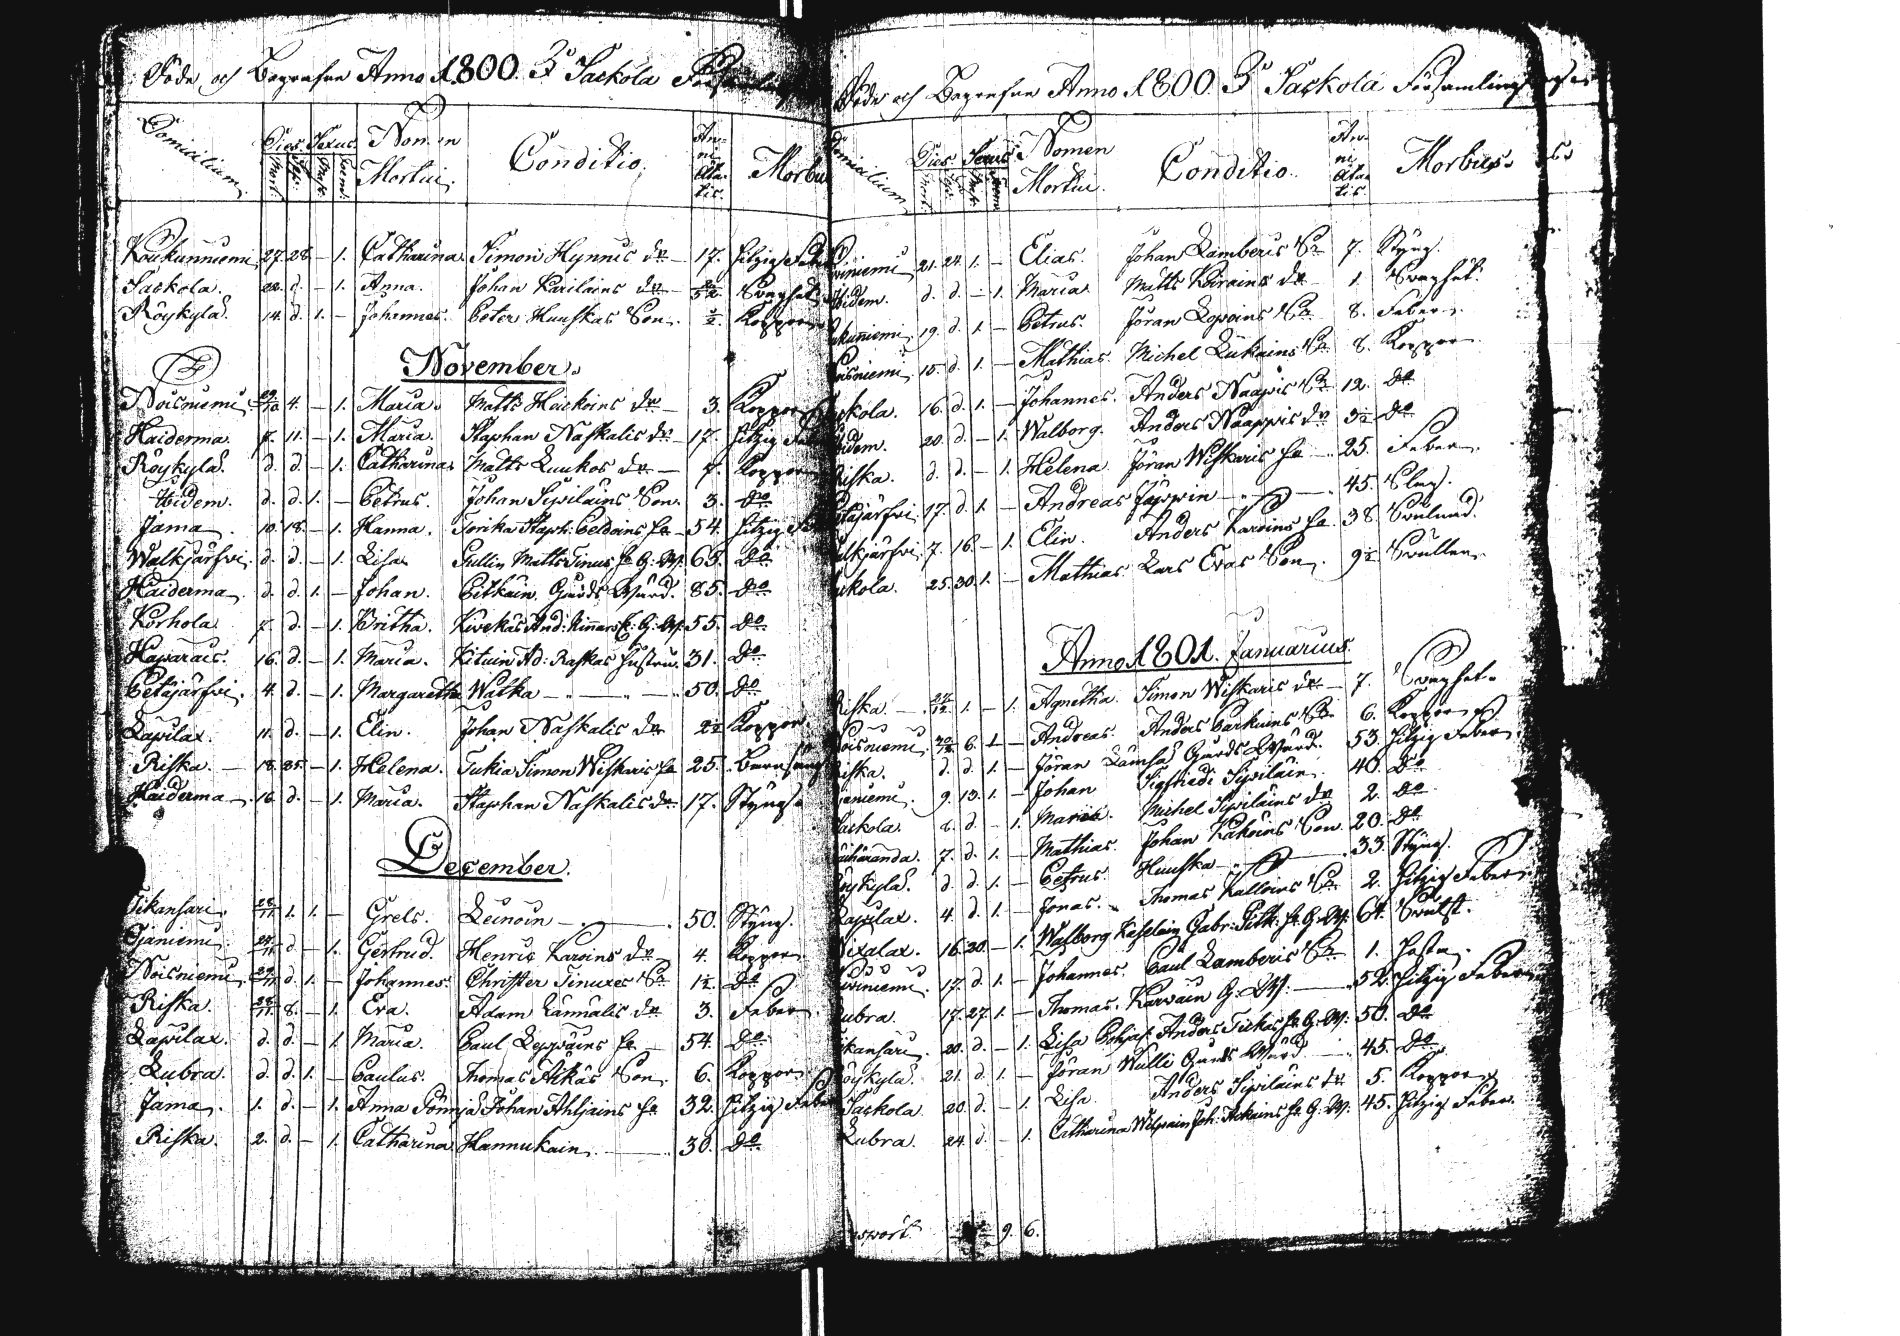 Döde och Begrafne Anno 1800. I Sackola
Domicilium. Dies. Sexus. Nomen Mortui. Conditio. Anni Ætatis. Morbus
Mort: Sep: Mask: Foem:
Koukunniemi 27. 28 – 1. Catharina Simon Hynnis dr – 17. Hitzig Feb
Sackola. 22. d. – 1. Anna. Johan Kavilains dr Svaghet
Röykylä. 14. d. 1. – Johannes. Peter Huuskas Son. ½. Koppor
November.
Noisniemi 29/10 4. – 1. Maria. Matts Heickoins dr – 3. Koppor
Haiderma. 7. 11. – 1. Maria. Staphan Naskalis dr – 17. Hitzig
Röykylä. d. d. – 1. Catharina Matts Luukos dr – 7. Koppor
Ibidem. d. d. 1. – Petrus. Johan Sipilains Son. 3. Do
Jama 10. 18. – 1. Hanna. Torika Staph: Peldoins ha – 54. Hitzig
Walkjärfvi. d. d. – 1. Lisa Matts Tinus h. G. W. 63. Do
Haiderma. d. d. 1. – Johan. Pitkäin Gårds Wärd. 85. Do
Korhola 7. d. – 1. Britha. Kivekäs And: Kinnars h: G: W: 55. Do
Haparais. 16. d. – 1. Maria. Kituin Ad: Raskas hustru. 31. Do
Petäjärfvi. 4. d. – 1. Margaretha Watka 50. Do
Lapilax. 11. d. – 1. Elin. Johan Naskalis dr 2½ Koppor
Riska. – 18. 25. – 1. Helena. Tukia Simon Wiskaris ha 25. Barnsäng
Haiderma – 16. d. – 1. Maria. Staphan Naskalis dr. 17. Styng.
December.
Tikansari. 28/11 1. 1. – Grels. Leinoin 50. Styng.
Igäniemi. 27/11 d. – 1. Gertrud. Henric Karoins dr 4. Koppor
Noisniemi 29/11 d. 1. – Johannes. Christer Tinuxes So 1½ Do
Riska. 28/11 8. – 1. Eva. Adam Lännälis dr 3. Feber
Lapilax. d. d. – 1. Maria. Paul Leppäins ha – 54. Do
Lubra. d. d. 1. – Paulus. Thomas Äikäs Son. 6. Koppor
Jama. 1. d. – 1. Anna Pönnjä Johan Ahljains ha 32. Hitzig Feber
Riska. 2. d. – 1. Catharina Hannukain 30. Do
Döde och Begrafne Anno 1800. I Sackola Församling
Domicilium. Dies. Sexus Nomen Mortui. Conditio. Anni Ætatis Morbus
niemi 21. 24. 1. – Elias. Johan Lamberis So 7. Styng.
Ibidem. d. d. – 1. Maria. Matts Koirains dr 1. Svaghet.
kunniemi 19. d. 1. – Petrus. Jöran Loposins So 8. Feber.
Noisniemi 15. d. 1. – Mathias. Michel Lukains So 8. Koppor
Sackola. 16. d. 1. – Johannes. Anders Naapis So 12. Do
Ibidem. 20. d. – 1. Walborg. Anders Naappis dr 3½ Do
Riska. d. d. – 1. Helena Jöran Wiskaris ha 25. Feber.
Petäjärfvi 17. d. 1. – Andreas Jäppin 45. Slag.
Walkjärfvi. 7. 16. – 1. Elin. Anders Karoins ha 38.
Sackola. 25. 30. 1. – Mathias. Lars Evas Son. 9½
Anno 1801. Januarius.
Riska. 24/12 1. – 1. Agnetha. Simon Wiskaris dr 7. Svaghet.
Noisniemi 30/12 6. 1 – Andreas. Anders Parkuins So 6. Koppor
Riska. d. d. 1. – Jöran Lämsä Gårds Wärd. 53. Hitzig Feber.
Igäniemi. 9. 13. 1. – Johan Sigfredi Sipiläin. 40. Do
Sackola. 8. d. – 1. Maria. Michel Sipiläins dr 2. Do
7. d. 1. – Mathias. Johan Kakoins Son. 20. Do
Röykylä. d. d. 1. – Petrus Huuska 33. Styng.
Lapilax. 4. d. 1. – Jonas. Thomas Kalloins So 2. Hitzig Feber.
Wixalax. 16. 20. – 1. Walborg Kaselain Gabr: Pitk: ha G: W: 64.
niemi. 17. d. 1. – Johannes. Paul Lamberis So 1. Hosta.
Lubra. 17. 27. 1. – Thomas. Karvain G: W. 52. Hitzig Feber
Tikansari. 20. d. – 1. Lisa Anders Tickas ha G: W: 50. Do
Röykylä. 21. d. 1. – Jöran Wulli Gårds Wärd 45. Do
Sackola 20. d. – 1. Lisa. Anders Sipiläins dr 5. Koppor
Lubra. 24. d. – 1. Catharina Wilpain Joh: ha G: W: 45. Hitzig Feber.
9. 6.